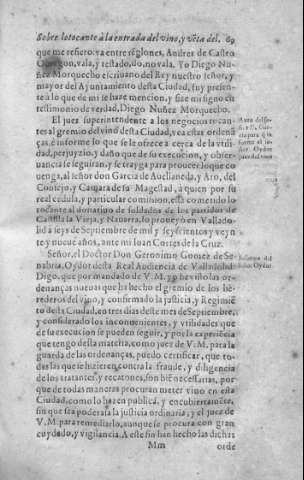 Sobre lo tocante à la entrada del vino, y vẽta del. 69
que me refiero. va entre rẽglones, Andres de Castro
vala, y testado, do, no vala. Yo Diego Nu
ñez Morquecho escriuano del Rey nuestro señor, y
mayor del Ayuntamiento desta Ciudad, fuy presen-
te à lo que de mi se haze mencion, y fize mi signo en
testimonio de verdad, Diego Nuñez Morquecho.
El juez superintendente a los negocios tocan-
tes al gremio del vino desta Ciudad, vea estas ordenã
ças, è informe lo que se le ofrece a cerca de la vtili-
dad, perjuyzio, y daño que de su execucion, y obser-
uancia se seguiran, y se trayga para proueer lo que co
uenga, al señor don Garcia de Auellaneda, y Aro, del
Consejo, y Camara de su Magestad, à quien por su
real cedula, y particular comision, està cometido lo
tocante al donatiuo de soldados de los partidos de
Castilla la Vieja, y Nauarra, lo proueyò en Vallado-
lid à seys de Septiembre de mil y seyscientos y veyn
te y nueue años, ante mi Iuan Cortes de la Cruz.
Señor, el Doctor Don Geronimo Gomez de Se-
nabria, Oydor desta Real Audiencia de Valladolid
Digo, que por mandado de V. M. yo he visto las or-
denanças nueuas que ha hecho el gremio de los he-
rederos del vino, y confirmado la justicia, y Regimiẽ
to desta Ciudad, en tres dias deste mes de Septiembre,
y considerado los inconuenientes, y vtilidades que
de su execucion se pueden seguir, y por la experiẽcia
que tengo desta materia, como juez de V. M. para la
guarda de las ordenanças, puedo certificar, que to-
das las que se hizieren contra la fraude, y diligencia
de los tratantes, y recatones, son biẽ necessarias, por
que de todas maneras procuran meter vino en esta
Ciudad, como lo hazen publica, y encubiertamẽte,
sin que sea poderosa la justicia ordinaria, y el juez de
V. M. para remediarlo, aunque se procura con gran
cuydado, y vigilancia. A este fin han hecho las dichas
Mm orde